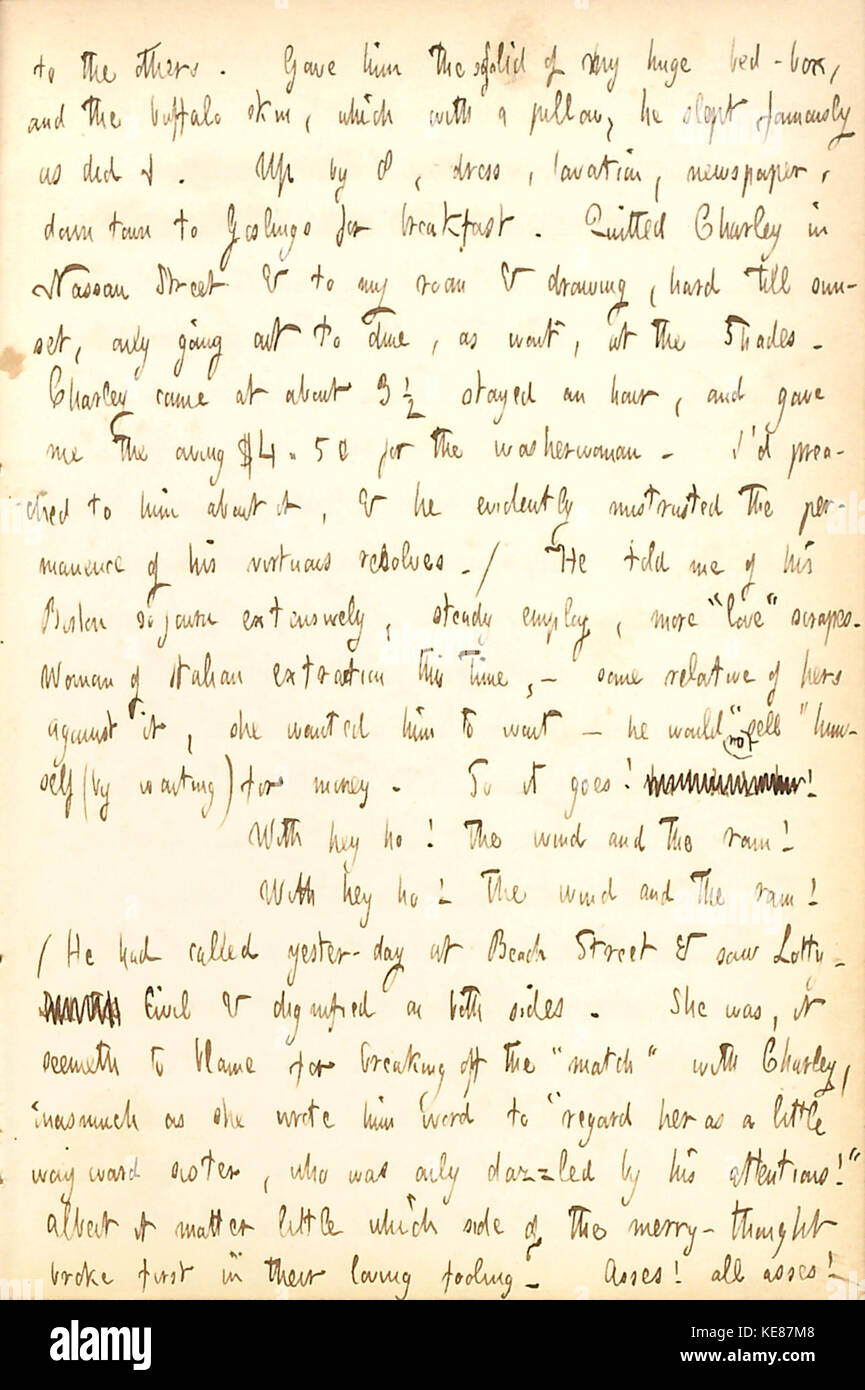 to the others. Gave him the solid of my huge bed-box,
and the buffalo skin, which with a pillow, he slept famously
as did I. Up by 8, dress, lavation, newspaper,
down town to Goslings for breakfast. Quitted Charley in
Nassau Street & to my room & drawing, hard till sun-
set, only going out to dine, as wont, at the Shades.
Charley came at about 3 ½ stayed an hour, and gave
me the owing $4.50 for the washerwoman. I'd prea-
ched to him about it, & he evidently mistrusted the per-
manence of his virtuous resolves. / He told me of his
Boston sojourn extensively, steady employ, more "love" scrapes.
Woman of Italian extraction this time, - some relative of hers
against it, she wanted him to wait - he would not "sell" him-
self (by waiting) for money. So it goes!
With hey ho! the wind and the rain!
With hey ho! the wind and the rain!
/ He had called yester-day at Beach Street & saw Lotty.
Civil & dignified on both sides. She was, it
seemeth to blame for breaking off the "match" with Charley,
inasmuch as she wrote him word to "regard her as a little
wayward sister, who was only dazzled by his attentions!"
Albeit it matter little which side of the merry-thought
broke first in their loving fooling. Asses! all asses!
alamy
Image ID: KE87M8
www.alamy.com